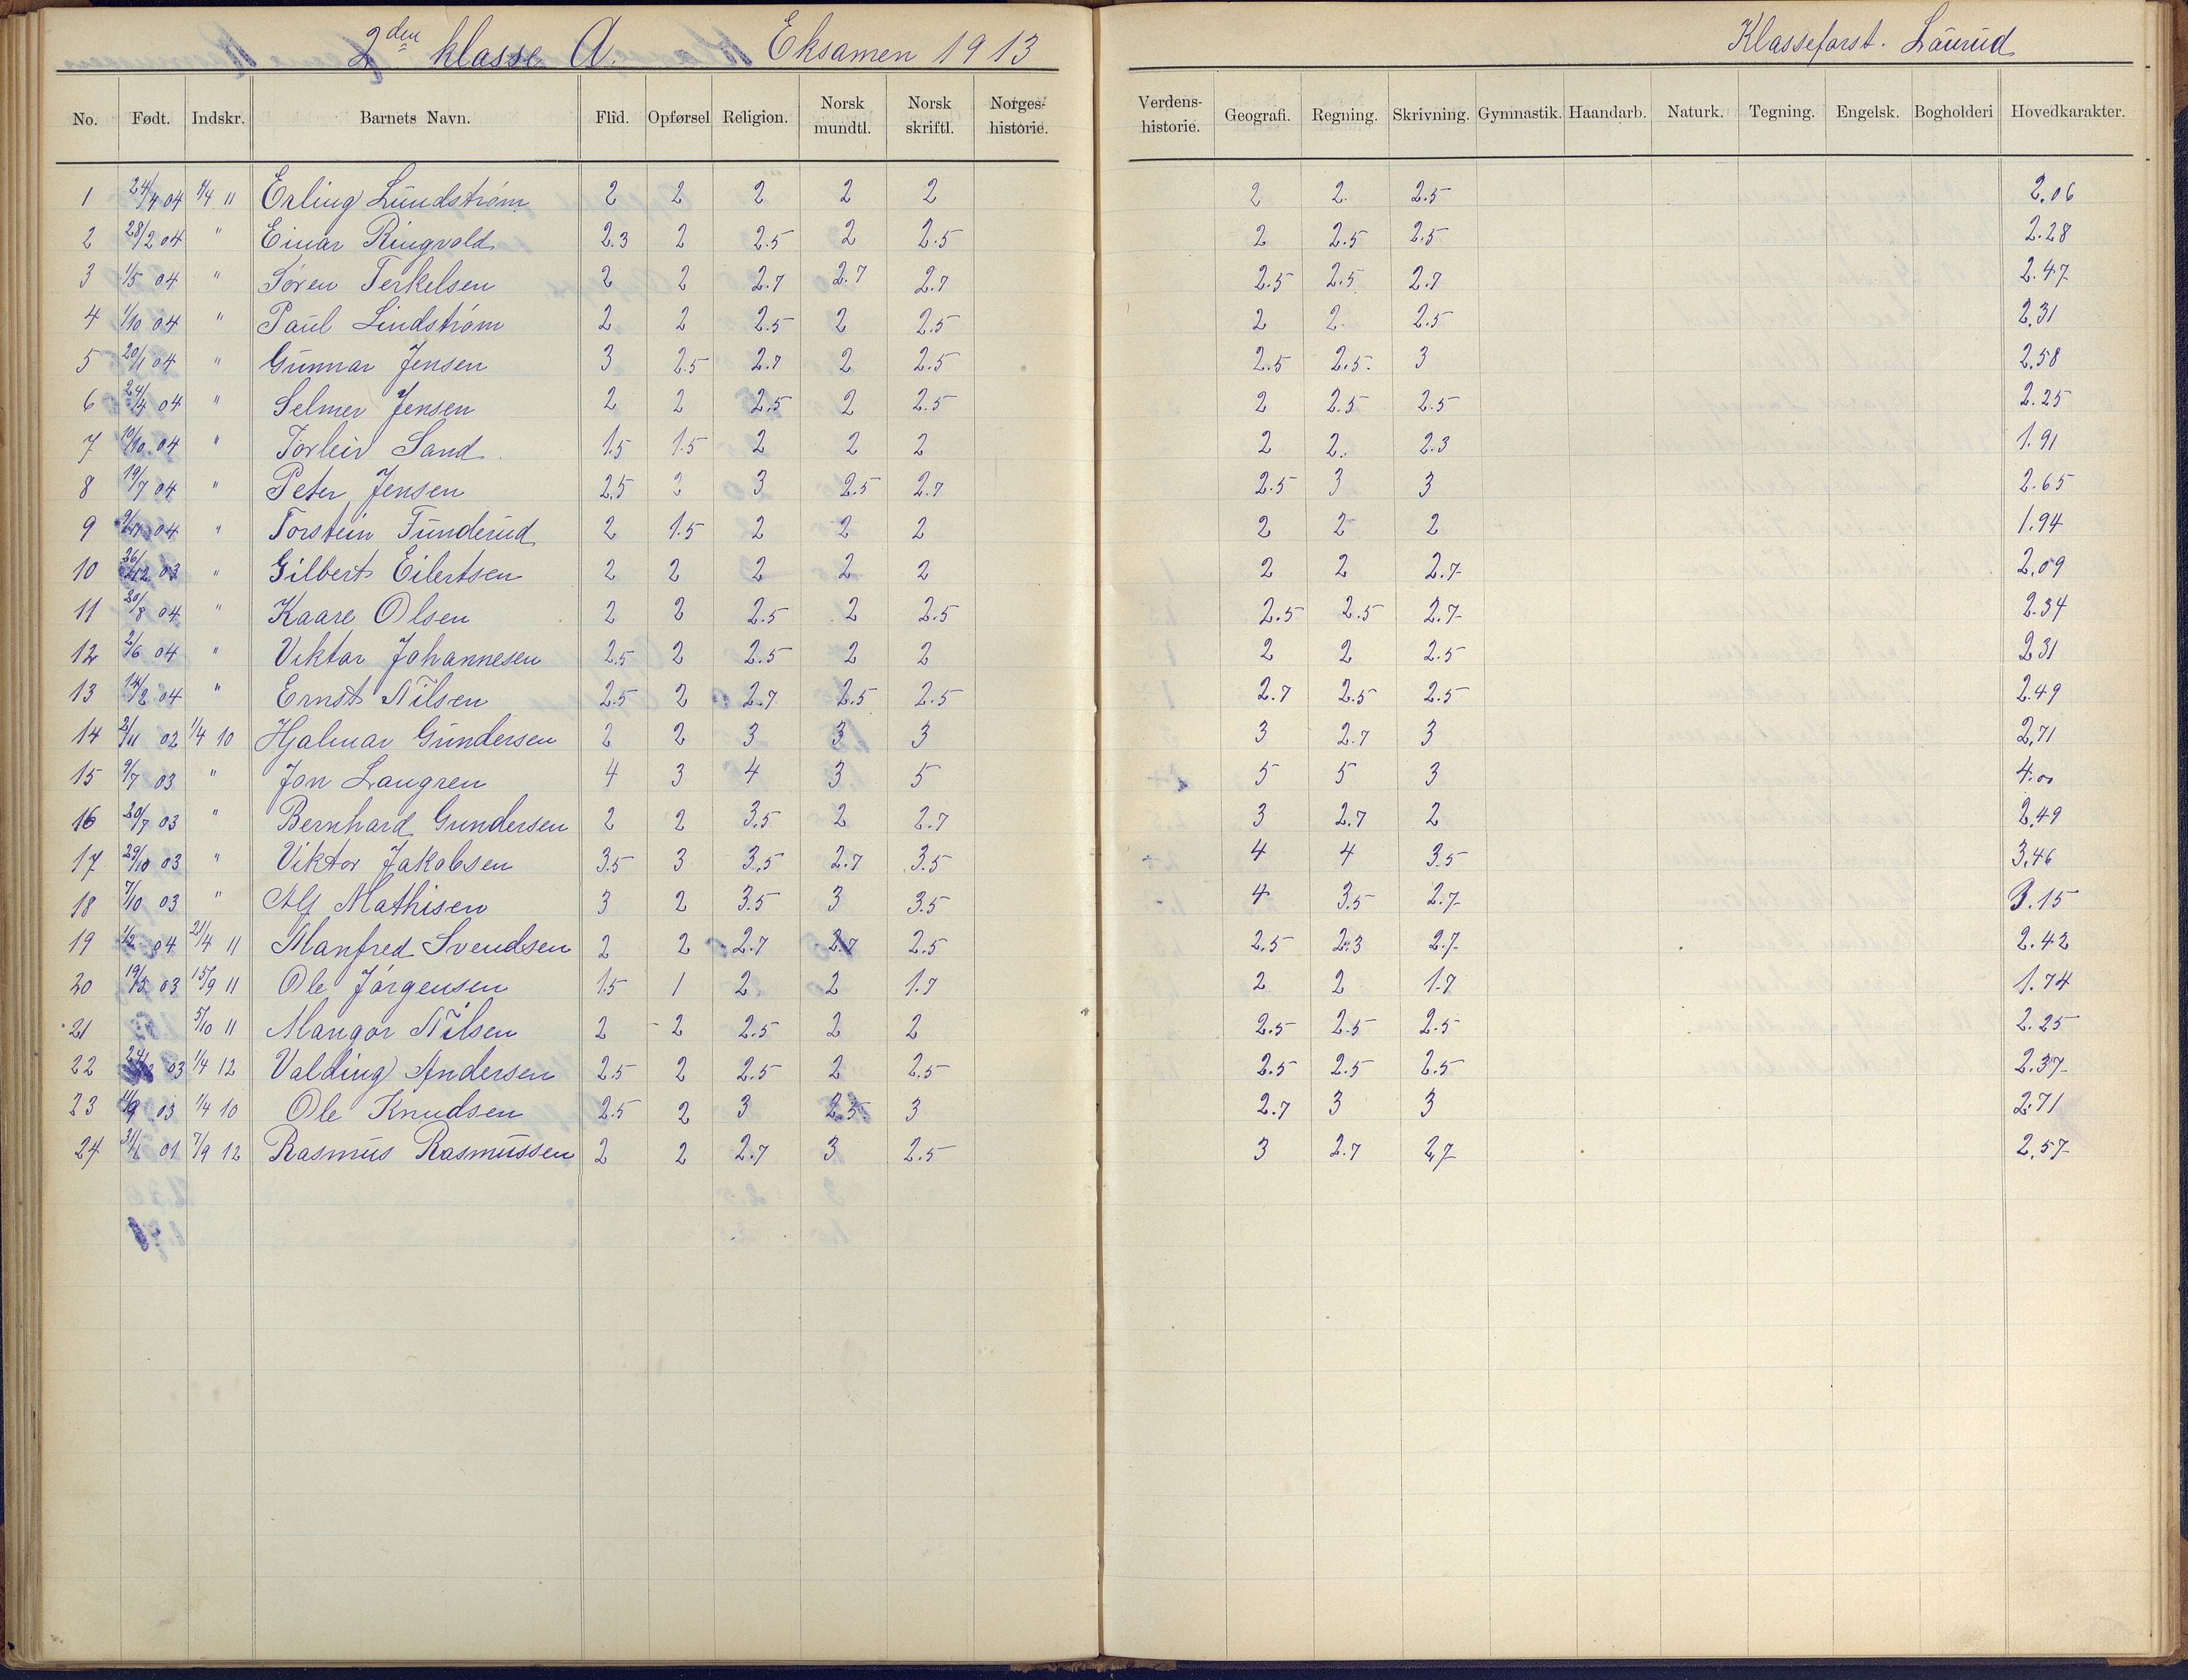 2den klasse A. Eksamen 1913 Klasseforst. Laurud
No. Født. Indskr. Barnets Navn. Flid. Opførsel Religion. Norsk mundtl. Norsk skriftl. Norges-historie. Verdens-historie. Geografi. Regning. Skrivning. Gymnastik. Haandarb. Naturk. Tegning. Engelsk. Bogholderi Hovedkarakter.
1 24/4 04 1/4 11 Erling Lundstrøm 2 2 2 2 2 2 2. 2.5 2.06
2 28/2 04 " Einar Ringvold 2.3 2 2.5 2 2.5 2 2.5 2.5 2.28
3 1/5 04 " Søren Terkelsen 2 2 2.7 2.7 2.7 2.5 2.5 2.7 2.47
4 1/10 04 " Paul Lindstrøm 2 2 2.5 2 2.5 2 2. 2.5 2.31
5 20/1 04 " Gunnar Jensen 3 2.5 2.7 2 2.5 2.5 2.5. 3 2.58
6 24/4 04 " Selmer Jensen 2 2 2.5 2 2.5 2 2.5 2.5 2.25
7 10/10 04 " Torleiv Sand 1.5 1.5 2 2 2 2 2. 2.3 1.91
8 19/7 04 " Peter Jensen 2.5 2 3 2.5 2.7 2.5 3 3 2.65
9 04 " Torstein Funderud 2 1.5 2 2 2 2 2 2 1.94
10 26/12 03 " Gilbert Eilertsen 2 2 2 2 2 2 2 2.7 2.09
11 20/8 04 " Kaare Olsen 2 2 2.5 2 2.5 2.5 2.5 2.7 2.34
12 2/6 04 " Viktor Johannesen 2.5 2 2.5 2 2 2 2 2.5 2.31
13 14/2 04 " Ernst Nilsen 2.5 2 2.7 2.5 2.5 2.7 2.5 2.5 2.49
14 2/11 02 1/4 10 Hjalmar Gundersen 2 2 3 3 3 3 2.7 3 2.71
15 9/7 03 " Jon Langren 4 3 4 3 5 5 5 3 4.00
16 20/7 03 " Bernhard Gundersen 2 2 3.5 2 2.7 3 2.7 2 2.49
17 29/10 03 " Viktor Jakobsen 3.5 3 3.5 2.7 3.5 4 4 3.5 3.46
18 7/10 03 " Alf Mathisen 3 2 3.5 3 3.5 4 3.5 2.7 3.15
19 1/2 04 21/4 11 Manfred Svendsen 2 2 2.7 2.7 2.5 2.5 2.3 2.7 2.42
20 19/5 03 15/9 11 Ole Jørgensen 1.5 1 2 2 1.7 2 2 1.7 1.74
21 5/10 11 Mangor Nilsen 2 2 2.5 2 2 2.5 2.5 2.5 2.25
22 03 1/4 12 Valding Andersen 2.5 2 2.5 2 2.5 2.5 2.5 2.5 2.37
23 11/9 03 1/4 10 Ole Knudsen 2.5 2 3 2.5 3 2.7 3 3 2.71
24 31/1 01 7/9 12 Rasmus Rasmussen 2 2 2.7 3 2.5 3 2.7 2.7 2.57